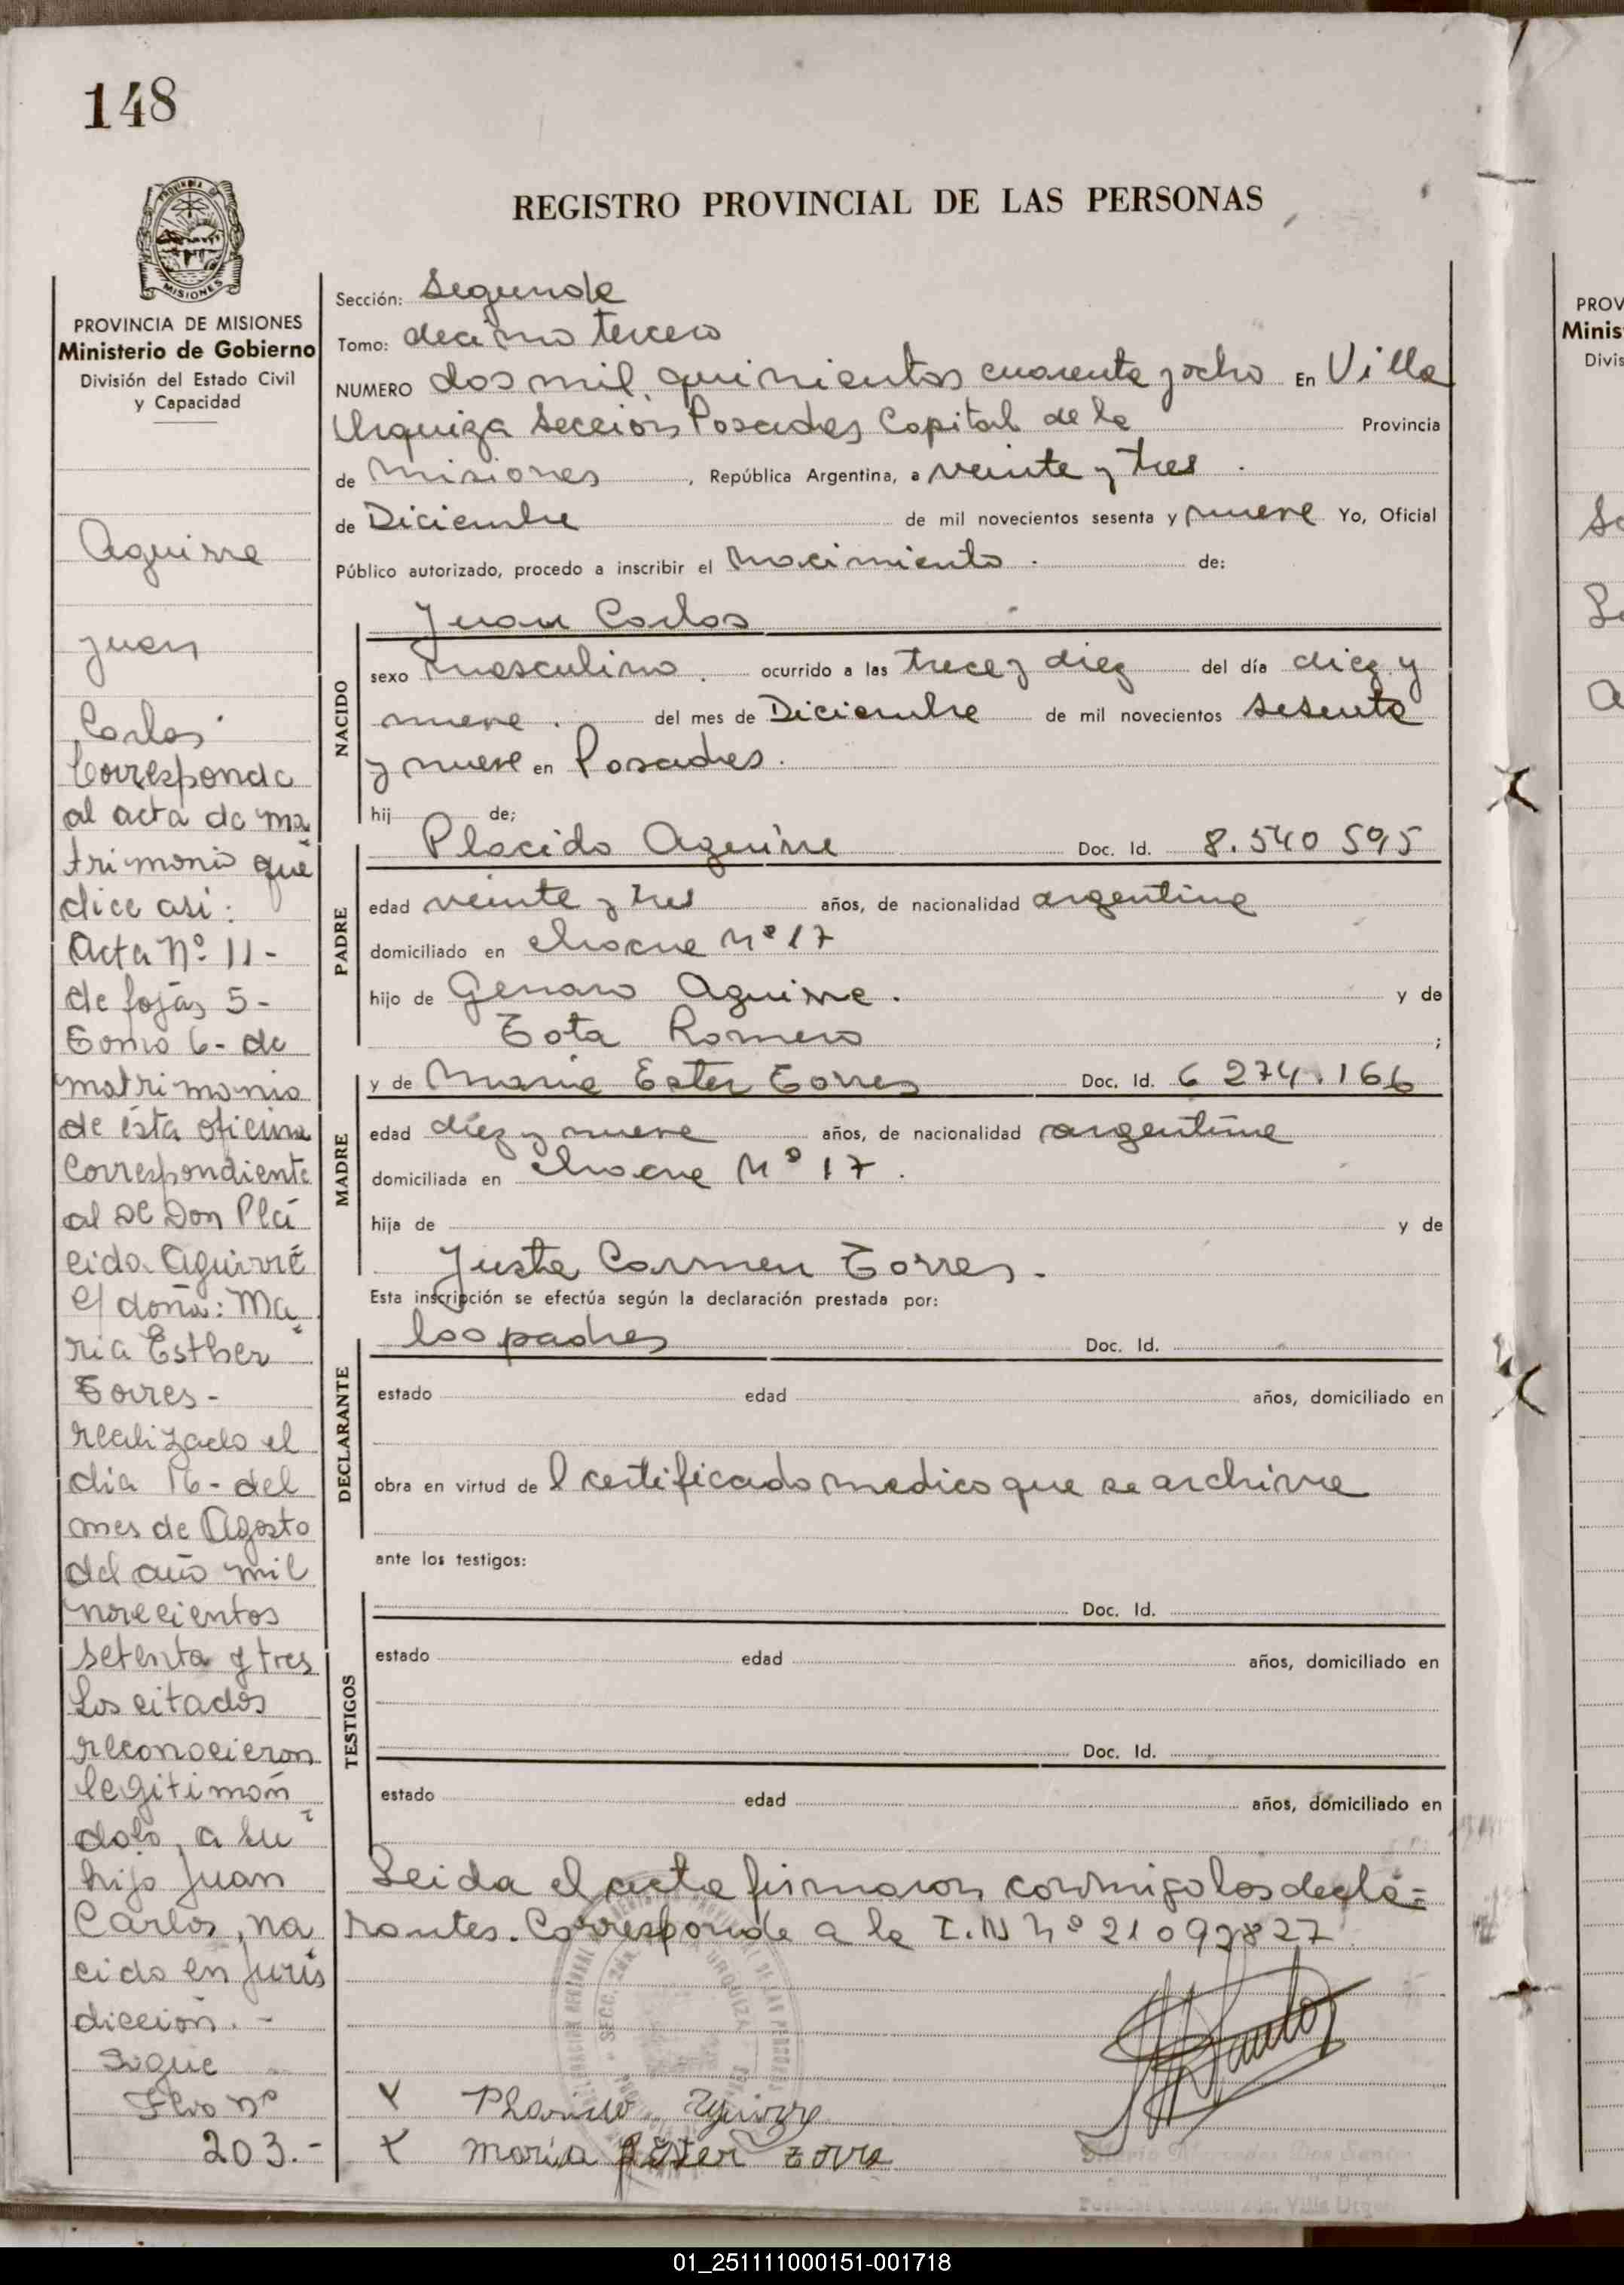 148
PROVINCIA DE MISIONES
Ministerio de Gobierno
División del Estado Civil
y Capacidad
Aguirre
Juan
Carlos
Corresponde
al acta de ma
trimonio que
dice asi:
Acta Nº 11-
de fojas 5-
Tomo 6- de
matrimonio
de ésta oficina
Correspondiente
al de Don Plá
cido Aguirre
c/ doña: Ma
ria Esther
Torres-
realizado el
dia 16- del
mes de Agosto
del año mil
novecientos
setenta y tres
Los citados
reconocieron
legitimán
dolo, a su
hijo Juan
Carlos, na
cido en juris
dicción. -
Sigue
Flio nº
203.-
REGISTRO PROVINCIAL DE LAS PERSONAS
Sección: Segunda
Tomo: decimo tercero
NUMERO dos mil quinientos cuarenta y ocho En Villa
Urquiza Sección Posadas Capital de la Provincia
de Misiones, República Argentina, a veinte y tres
de Diciembre de mil novecientos sesenta y nueve Yo, Oficial
Público autorizado, procedo a inscribir el nacimiento de:
Juan Carlos
NACIDO
sexo masculino. ocurrido a las trece y diez del día diez y
nueve. del mes de Diciembre de mil novecientos sesenta
y nueve en Posadas.
hij de;
PADRE
Placido Aguirre Doc. Id. 8.540 595
edad veinte y tres años, de nacionalidad argentina
domiciliado en Chacra Nº 17
hijo de Genaro Aguirre. y de
Tota Romero ;
MADRE
y de Maria Ester Torres Doc. Id. 6 274.166
edad diez y nueve años, de nacionalidad argentina
domiciliada en Chacra Nº 17.
hija de y de
Justa Carmen Torres.
Esta inscripción se efectúa según la declaración prestada por:
DECLARANTE
los padres Doc. Id.
estado edad años, domiciliado en
obra en virtud de l certificado medico que se archiva
ante los testigos:
TESTIGOS
Doc. Id.
estado edad años, domiciliado en
Doc. Id.
estado edad años, domiciliado en
Leida el acta firmaron conmigo los decla=
rantes. Corresponde a la I.N nº 21092827
x Aguirre
x maria Ester torre
Dos Santos
Villa Urqu
PROV
Minis
Divis
01_251111000151-001718